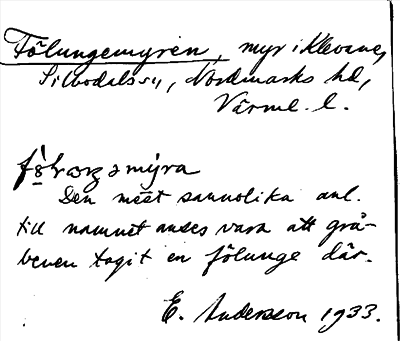 Fölungemyren, myr i Klevane,
Silbodals sn, Nordmarks hd,
Värml. l.
Den mest sannolika anl.
till namnet anses vara att grå-
benen tagit en fölunge där.
E. Andersson 1933.